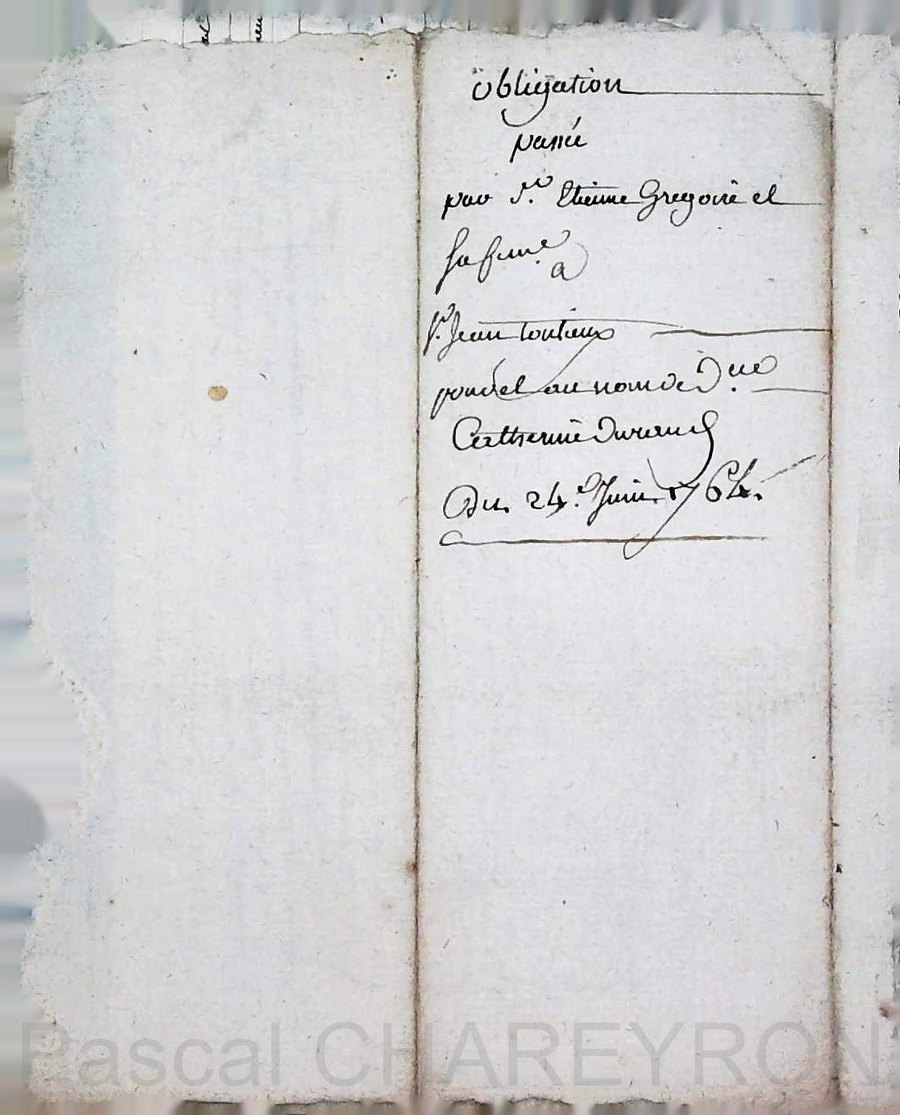 obligation
passée
par Sr. Etienne Gregoire et
sa fme
a
Sr. Jean
au nom de Dlle
Catherine Durand
Du 24e. Juin 1764.
Pascal CHAREYRON